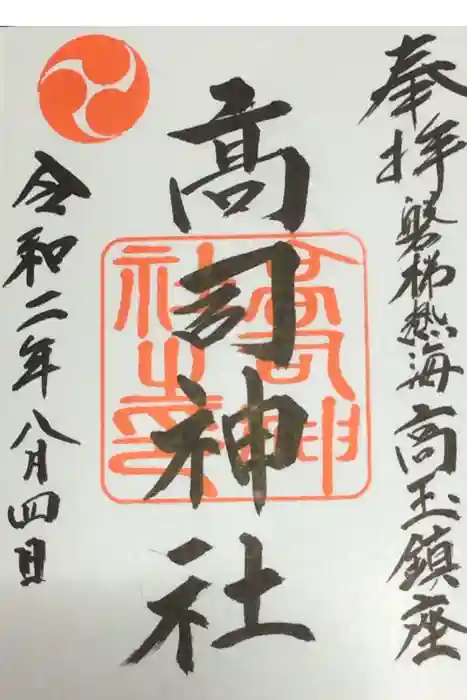 奉拝 磐梯熱海高玉鎮座
髙司神社
高司神社之印
令和二年八月四日